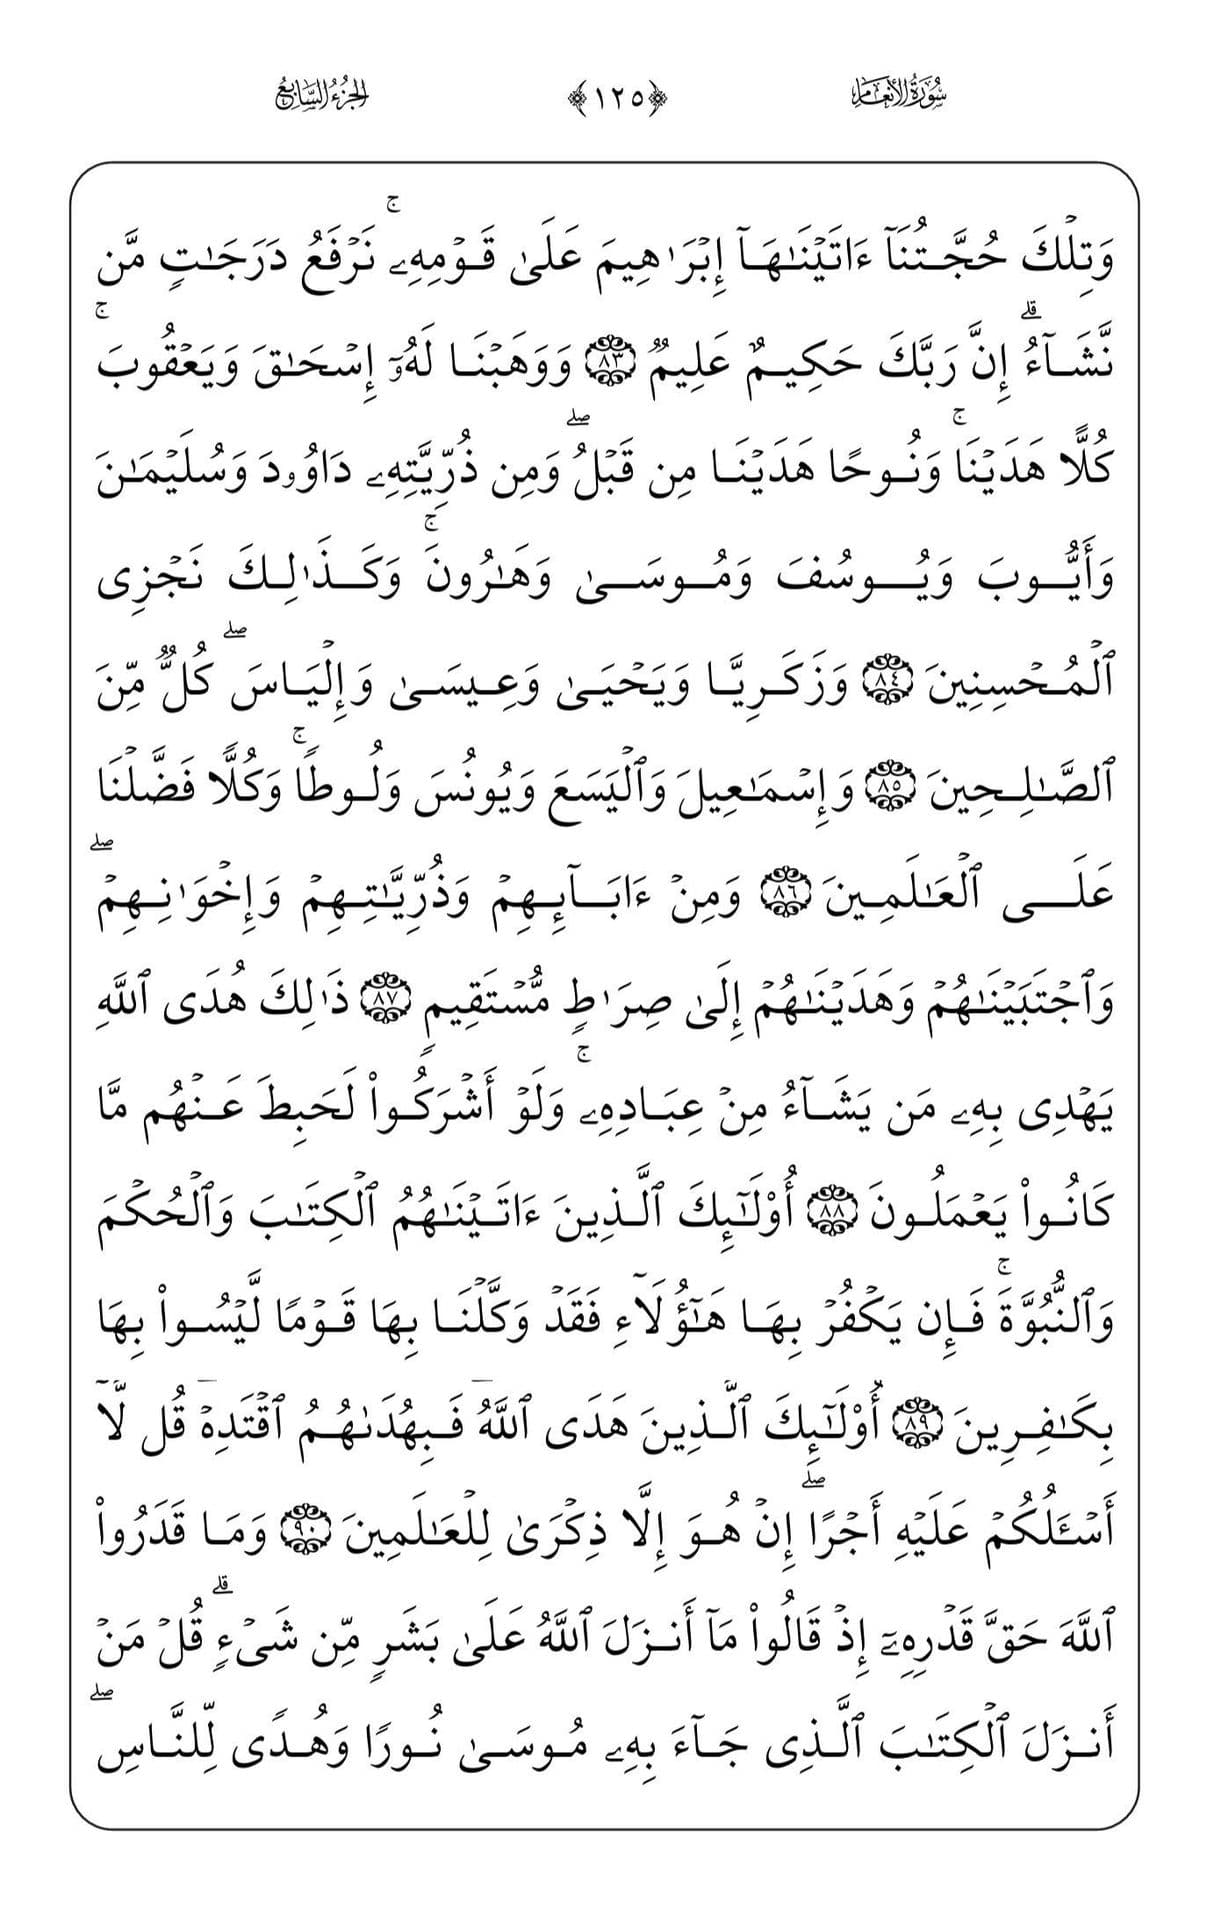 سُورَةُ الأَنْعَامِ ﴿١٢٥﴾ الجُزْءُ السَّابِعُ
وَتِلۡكَ حُجَّتُنَآ ءَاتَيۡنَٰهَآ إِبۡرَٰهِيمَ عَلَىٰ قَوۡمِهِۦۚ نَرۡفَعُ دَرَجَٰتٖ مَّن
نَّشَآءُۗ إِنَّ رَبَّكَ حَكِيمٌ عَلِيمٞ ٨٣ وَوَهَبۡنَا لَهُۥٓ إِسۡحَٰقَ وَيَعۡقُوبَۚ
كُلًّا هَدَيۡنَاۚ وَنُوحًا هَدَيۡنَا مِن قَبۡلُۖ وَمِن ذُرِّيَّتِهِۦ دَاوُۥدَ وَسُلَيۡمَٰنَ
وَأَيُّوبَ وَيُوسُفَ وَمُوسَىٰ وَهَٰرُونَۚ وَكَذَٰلِكَ نَجۡزِي
ٱلۡمُحۡسِنِينَ ٨٤ وَزَكَرِيَّا وَيَحۡيَىٰ وَعِيسَىٰ وَإِلۡيَاسَۖ كُلّٞ مِّنَ
ٱلصَّٰلِحِينَ ٨٥ وَإِسۡمَٰعِيلَ وَٱلۡيَسَعَ وَيُونُسَ وَلُوطٗاۚ وَكُلّٗا فَضَّلۡنَا
عَلَى ٱلۡعَٰلَمِينَ ٨٦ وَمِنۡ ءَابَآئِهِمۡ وَذُرِّيَّٰتِهِمۡ وَإِخۡوَٰنِهِمۡۖ
وَٱجۡتَبَيۡنَٰهُمۡ وَهَدَيۡنَٰهُمۡ إِلَىٰ صِرَٰطٖ مُّسۡتَقِيمٖ ٨٧ ذَٰلِكَ هُدَى ٱللَّهِ
يَهۡدِي بِهِۦ مَن يَشَآءُ مِنۡ عِبَادِهِۦۚ وَلَوۡ أَشۡرَكُواْ لَحَبِطَ عَنۡهُم مَّا
كَانُواْ يَعۡمَلُونَ ٨٨ أُوْلَٰٓئِكَ ٱلَّذِينَ ءَاتَيۡنَٰهُمُ ٱلۡكِتَٰبَ وَٱلۡحُكۡمَ
وَٱلنُّبُوَّةَۚ فَإِن يَكۡفُرۡ بِهَا هَٰٓؤُلَآءِ فَقَدۡ وَكَّلۡنَا بِهَا قَوۡمٗا لَّيۡسُواْ بِهَا
بِكَٰفِرِينَ ٨٩ أُوْلَٰٓئِكَ ٱلَّذِينَ هَدَى ٱللَّهُۖ فَبِهُدَىٰهُمُ ٱقۡتَدِهۡۗ قُل لَّآ
أَسۡـَٔلُكُمۡ عَلَيۡهِ أَجۡرًاۖ إِنۡ هُوَ إِلَّا ذِكۡرَىٰ لِلۡعَٰلَمِينَ ٩٠ وَمَا قَدَرُواْ
ٱللَّهَ حَقَّ قَدۡرِهِۦٓ إِذۡ قَالُواْ مَآ أَنزَلَ ٱللَّهُ عَلَىٰ بَشَرٖ مِّن شَيۡءٖۗ قُلۡ مَنۡ
أَنزَلَ ٱلۡكِتَٰبَ ٱلَّذِي جَآءَ بِهِۦ مُوسَىٰ نُورٗا وَهُدٗى لِّلنَّاسِۖ